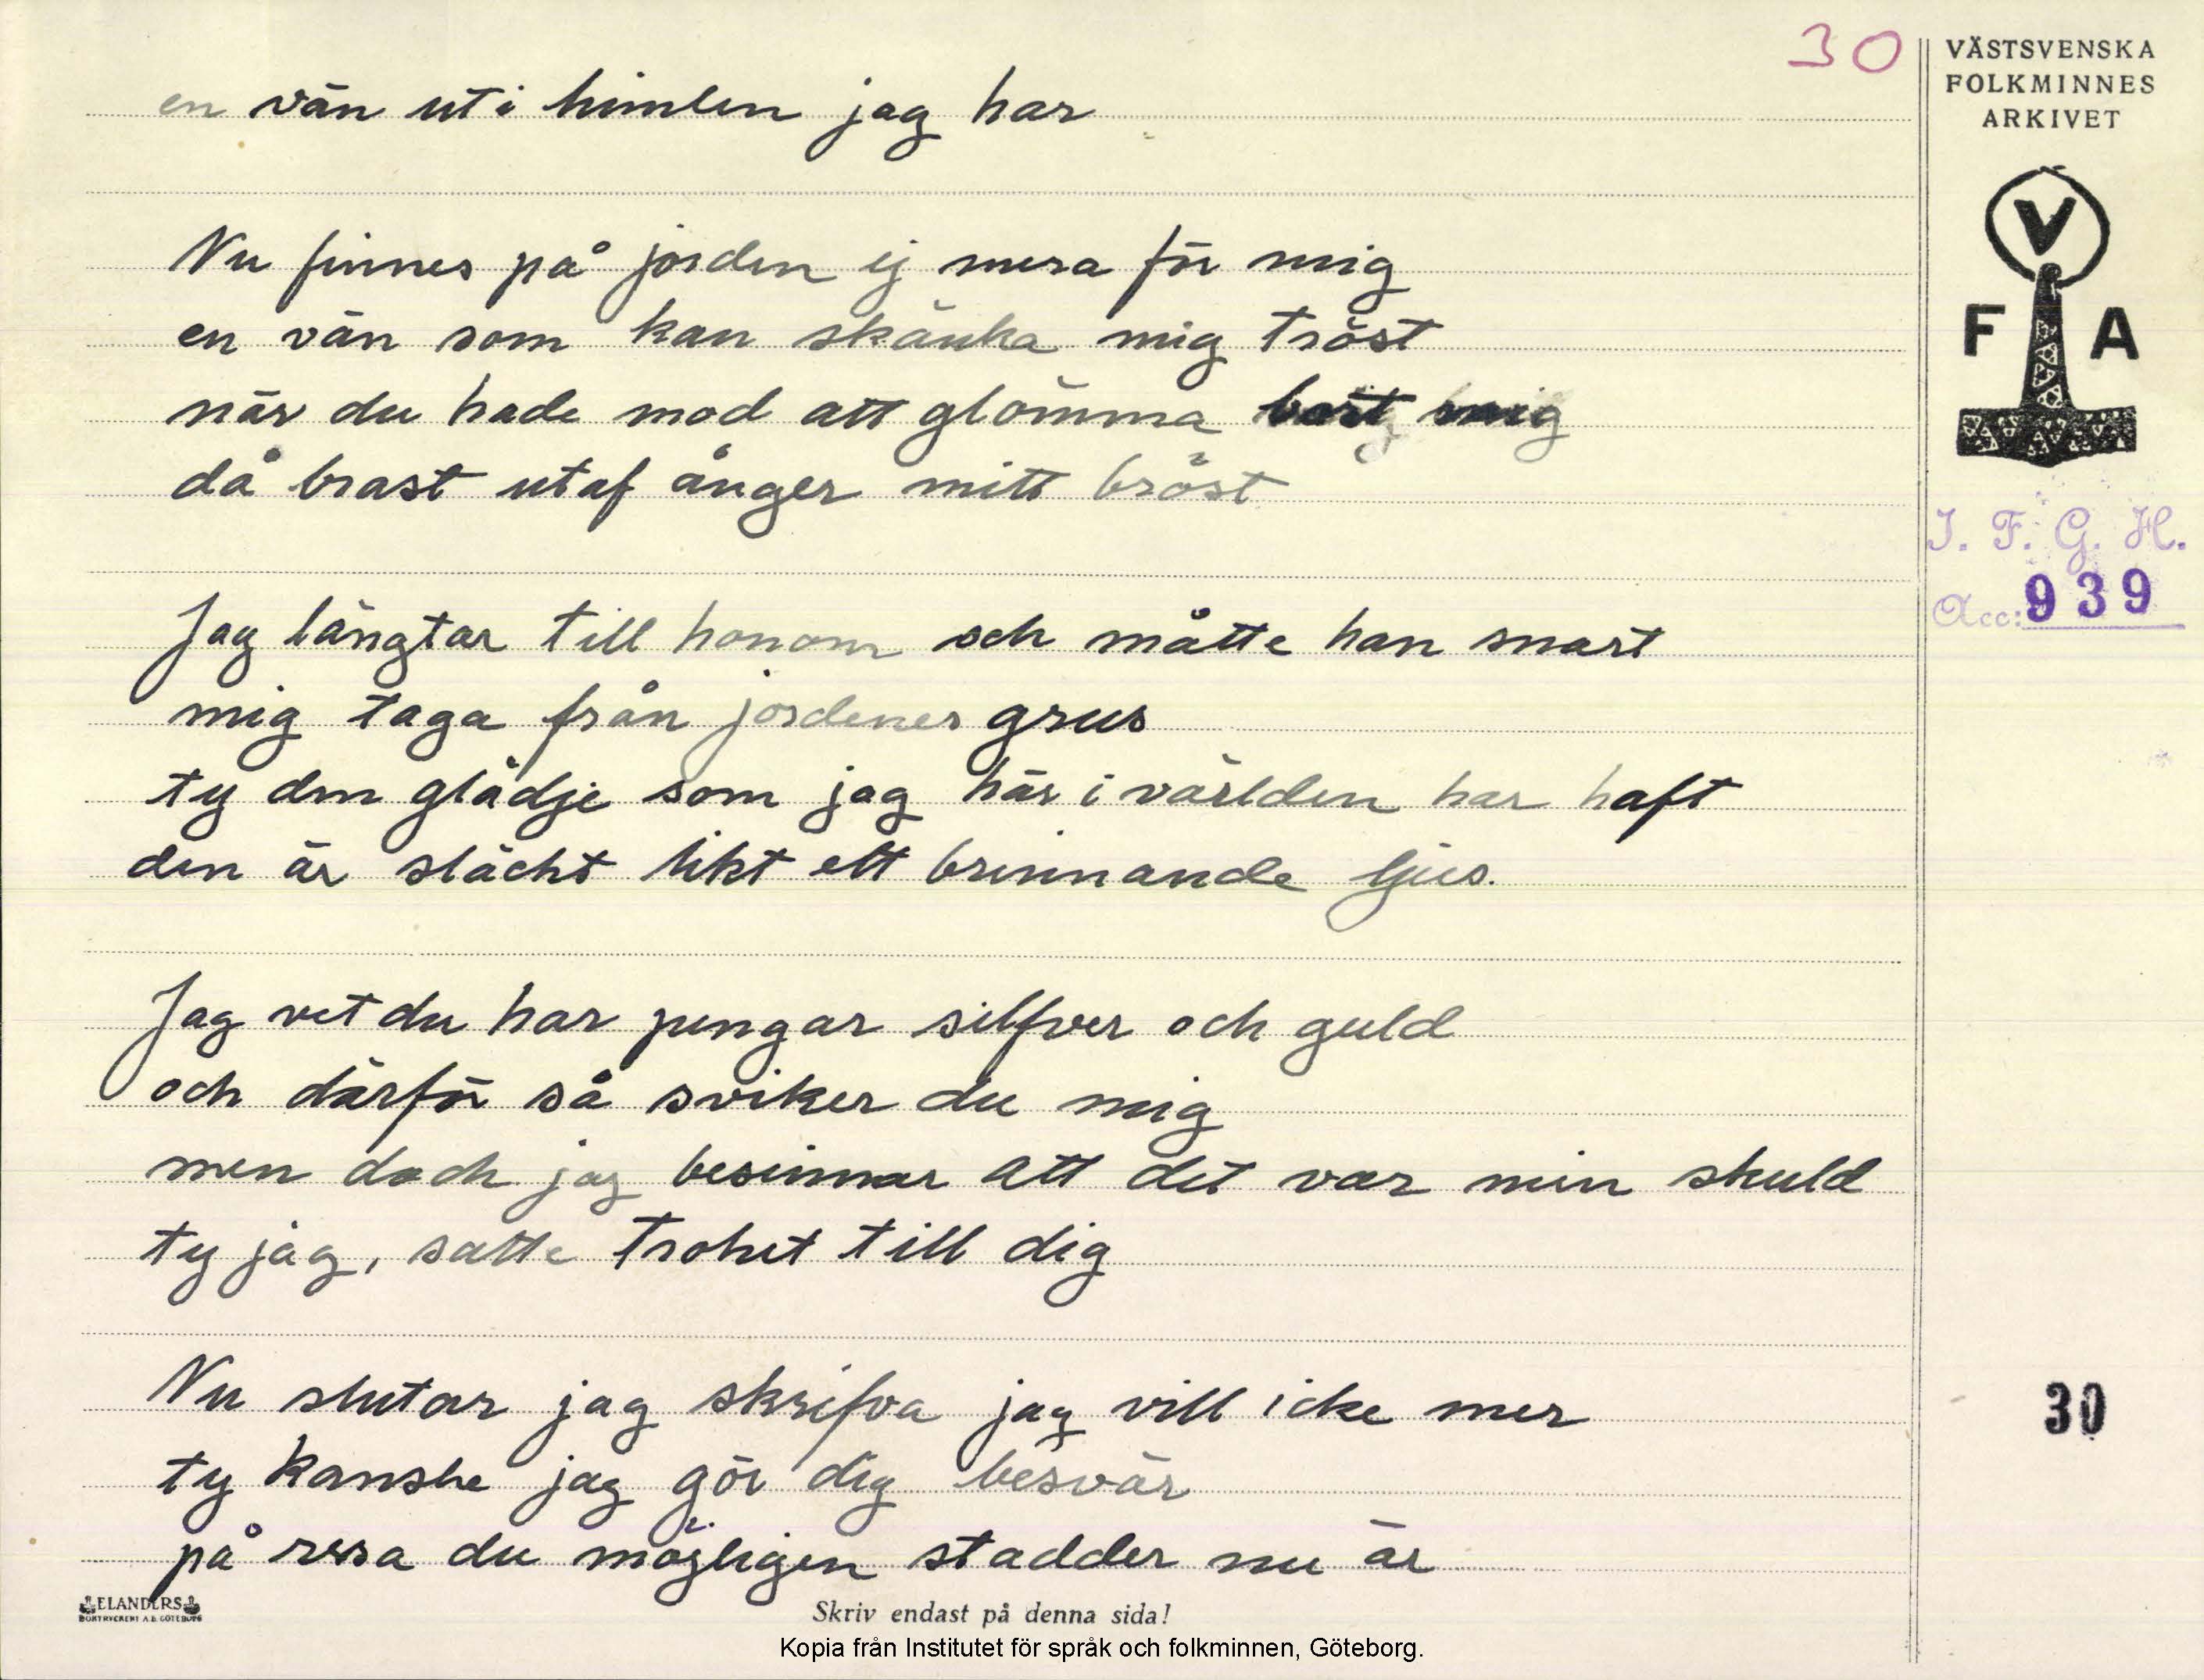 30
en vän uti himlen jag har
Nu finnes på jorden ej mera för mig
en vän som kan skänka mig tröst
när du hade mod att glömma bort mig
då brast utaf ånger mitt bröst
Jag längtar till honom och måtte han snart
mig taga från jordenes grus
ty den glädje som jag här i världen har haft
den är slächt likt ett brinnande ljus.
Jag vet du har pengar silfver och guld
och därför så sviker du mig
men doch jag besinnar att det var min skuld
ty jag, satte trohet till dig
Nu slutar jag skrifva jag vill icke mer
ty kanshe jag gör dig besvär
på resa du möjligen stadder nu är
VÄSTSVENSKA
FOLKMINNES
ARKIVET
V
F A
I. F. G. H.
Acc: 939
30
ELANDERS
BOKTRYCKERI A.B. GÖTEBORG
Skriv endast på denna sida!
Kopia från Institutet för språk och folkminnen, Göteborg.